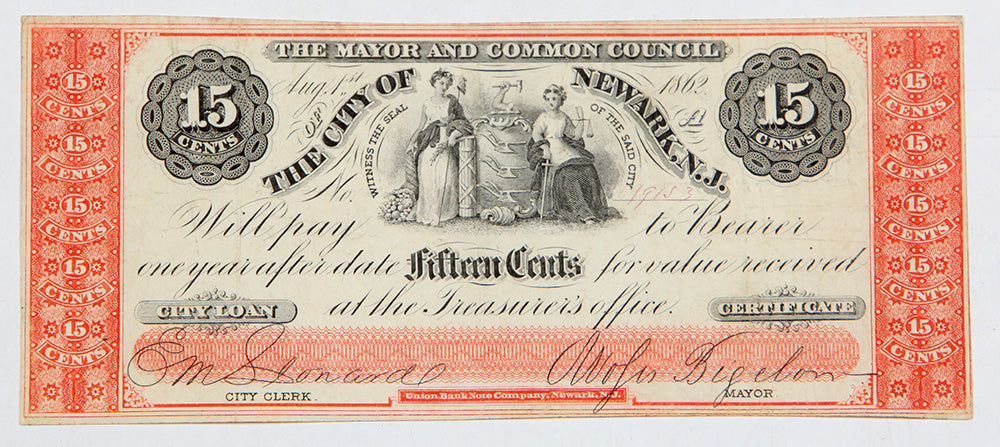 THE MAYOR AND COMMON COUNCIL
Aug. 1st 1862
THE CITY OF NEWARK, N.J.
15 CENTS
15 CENTS
WITNESS THE SEAL OF THE SAID CITY
No. 19153
Will pay to Bearer
one year after date Fifteen Cents for value received
at the Treasurer's office.
CITY LOAN CERTIFICATE
Moses Bigelow
CITY CLERK. MAYOR.
Union Bank Note Company, Newark, N.J.
15 CENTS
15 CENTS
15 CENTS
15 CENTS
15 CENTS
15 CENTS
15 CENTS
15 CENTS
15 CENTS
15 CENTS
15 CENTS
15 CENTS